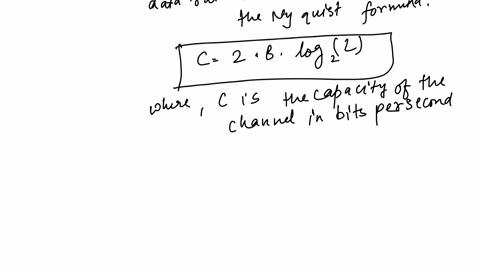 data
the Nyquist formula.
C = 2 · B · log₂(L)
where, C is the capacity of the
channel in bits per second